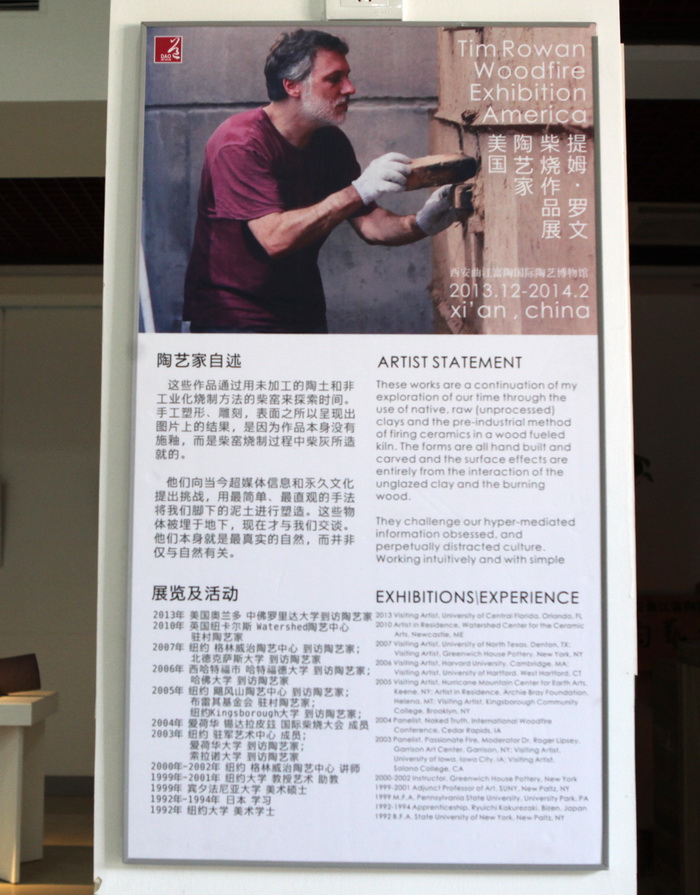 DAO
Tim Rowan
Woodfire
Exhibition
America
提姆·罗文
柴烧作品展
陶艺家
美国
西安曲江富陶国际陶艺博物馆
2013.12-2014.2
xi'an, china
陶艺家自述
这些作品通过用未加工的陶土和非
工业化烧制方法的柴窑来探索时间。
手工塑形、雕刻，表面之所以呈现出
图片上的结果，是因为作品本身没有
施釉，而是柴窑烧制过程中柴灰所造
就的。
他们向当今超媒体信息和永久文化
提出挑战，用最简单、最直观的手法
将我们脚下的泥土进行塑造。这些物
体被埋于地下，现在才与我们交谈。
他们本身就是最真实的自然，而并非
仅与自然有关。
ARTIST STATEMENT
These works are a continuation of my
exploration of our time through the
use of native, raw (unprocessed)
clays and the pre-industrial method
of firing ceramics in a wood fueled
kiln. The forms are all hand built and
carved and the surface effects are
entirely from the interaction of the
unglazed clay and the burning
wood.
They challenge our hyper-mediated
information obsessed, and
perpetually distracted culture.
Working intuitively and with simple
展览及活动
2013年 美国奥兰多 中佛罗里达大学到访陶艺家
2010年 英国纽卡尔斯 Watershed陶艺中心
驻村陶艺家
2007年 纽约 格林威治陶艺中心 到访陶艺家；
北德克萨斯大学 到访陶艺家
2006年 西哈特福市 哈特福德大学 到访陶艺家；
哈佛大学 到访陶艺家
2005年 纽约 飓风山陶艺中心 到访陶艺家；
布雷其基金会 驻村陶艺家；
纽约Kingsborough大学 到访陶艺家；
2004年 爱荷华 锡达拉皮兹 国际柴烧大会 成员
2003年 纽约 驻军艺术中心 成员；
爱荷华大学 到访陶艺家；
索拉诺大学 到访陶艺家
2000年-2002年 纽约 格林威治陶艺中心 讲师
1999年-2001年 纽约大学 教授艺术 助教
1999年 宾夕法尼亚大学 美术硕士
1992年-1994年 日本 学习
1992年 纽约大学 美术学士
EXHIBITIONS\EXPERIENCE
2013 Visiting Artist, University of Central Florida, Orlando, FL
2010 Artist in Residence, Watershed Center for the Ceramic
Arts, Newcastle, ME
2007 Visiting Artist, University of North Texas, Denton, TX;
Visiting Artist, Greenwich House Pottery, New York, NY
2006 Visiting Artist, Harvard University, Cambridge, MA;
Visiting Artist, University of Hartford, West Hartford, CT
2005 Visiting Artist, Hurricane Mountain Center for Earth Arts,
Keene, NY; Artist in Residence, Archie Bray Foundation,
Helena, MT; Visiting Artist, Kingsborough Community
College, Brooklyn, NY
2004 Panelist, Naked Truth, International Woodfire
Conference, Cedar Rapids, IA
2003 Panelist, Passionate Fire, Moderator Dr. Roger Lipsey,
Garrison Art Center, Garrison, NY; Visiting Artist,
University of Iowa, Iowa City, IA; Visiting Artist,
Solano College, CA
2000-2002 Instructor, Greenwich House Pottery, New York
1999-2001 Adjunct Professor of Art, SUNY, New Paltz, NY
1999 M.F.A. Pennsylvania State University, University Park, PA
1992-1994 Apprenticeship, Ryuichi Kakurezaki, Bizen, Japan
1992 B.F.A. State University of New York, New Paltz, NY